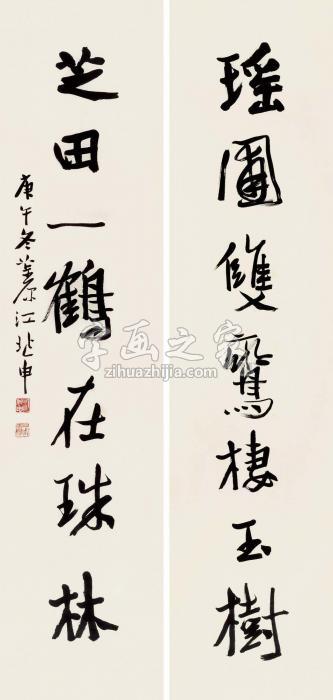 瑶圃雙鸞棲玉樹
芝田一鶴在珠林
庚午冬江兆申
字画之家
zihuazhijia.com